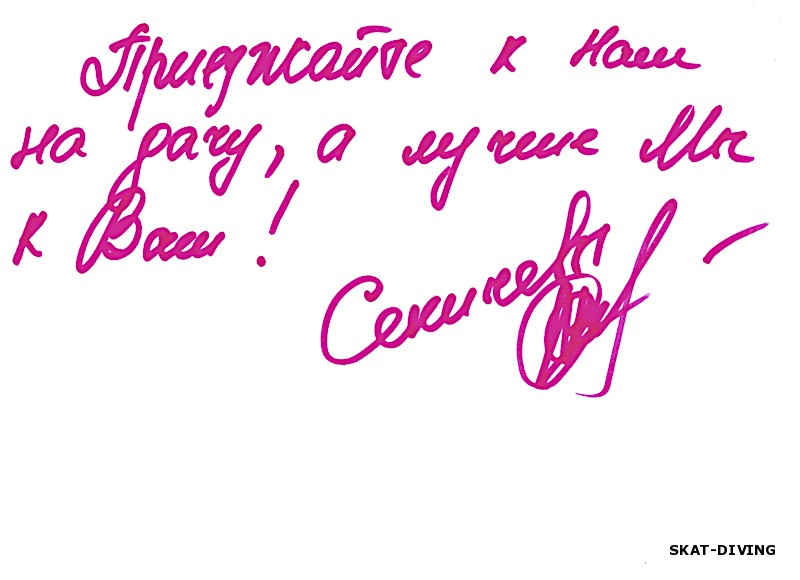 Приеджайте к нам
на дачу, а лучше Мы
к Вам!
SKAT-DIVING